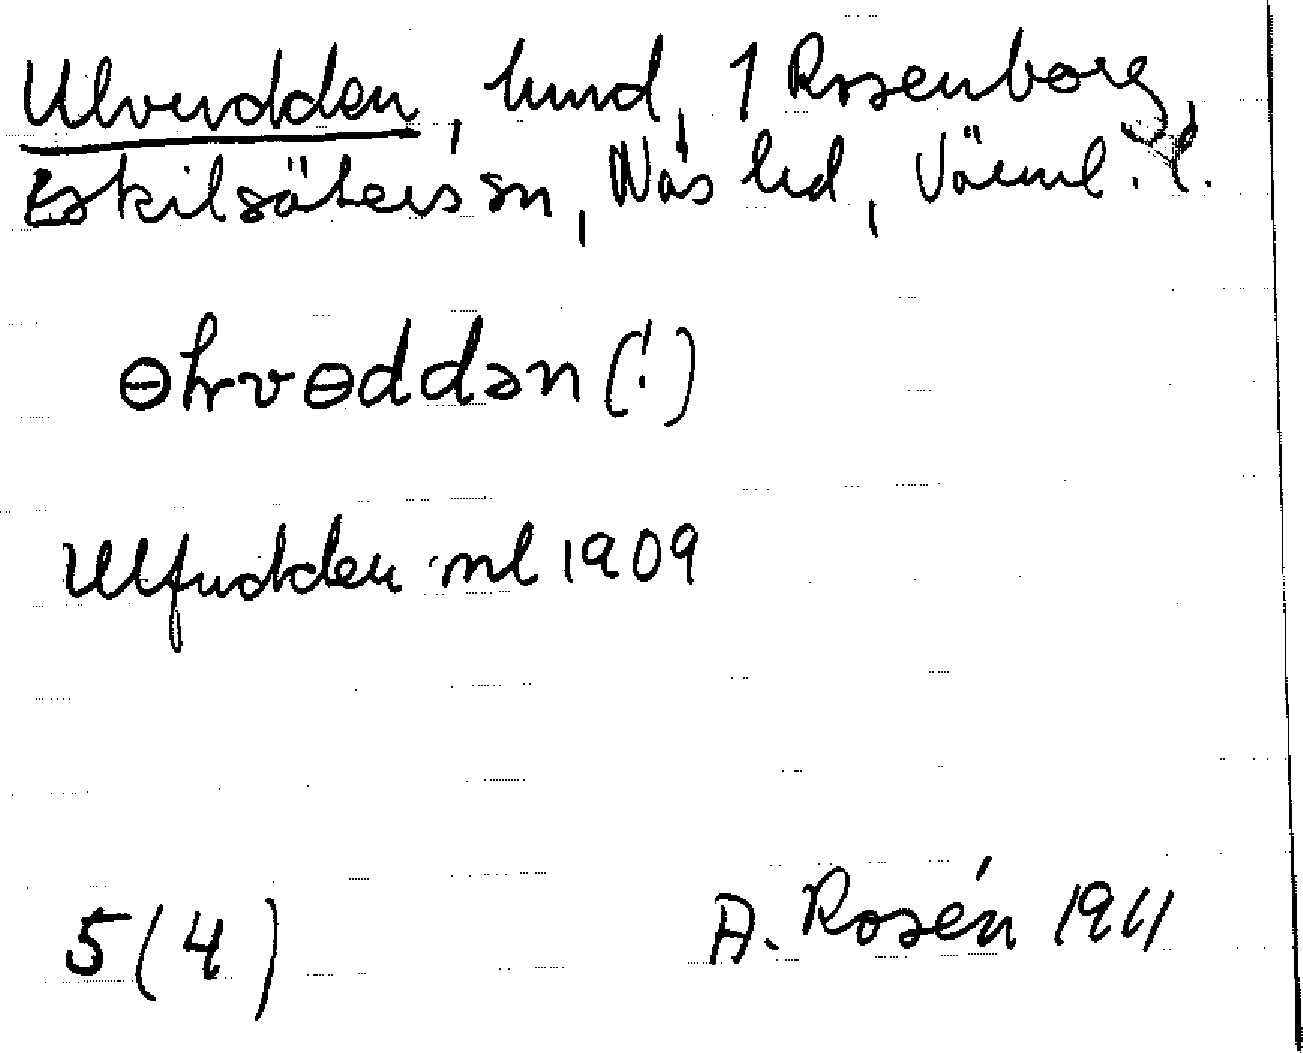 Ulvudden, lund, 1 Rosenborg,
Eskilsäters sn, Näs hd, Värml. l.
ɵhrvɵddən (!)
Ulfudden ml 1909
5 (4)
A. Rosén 1911